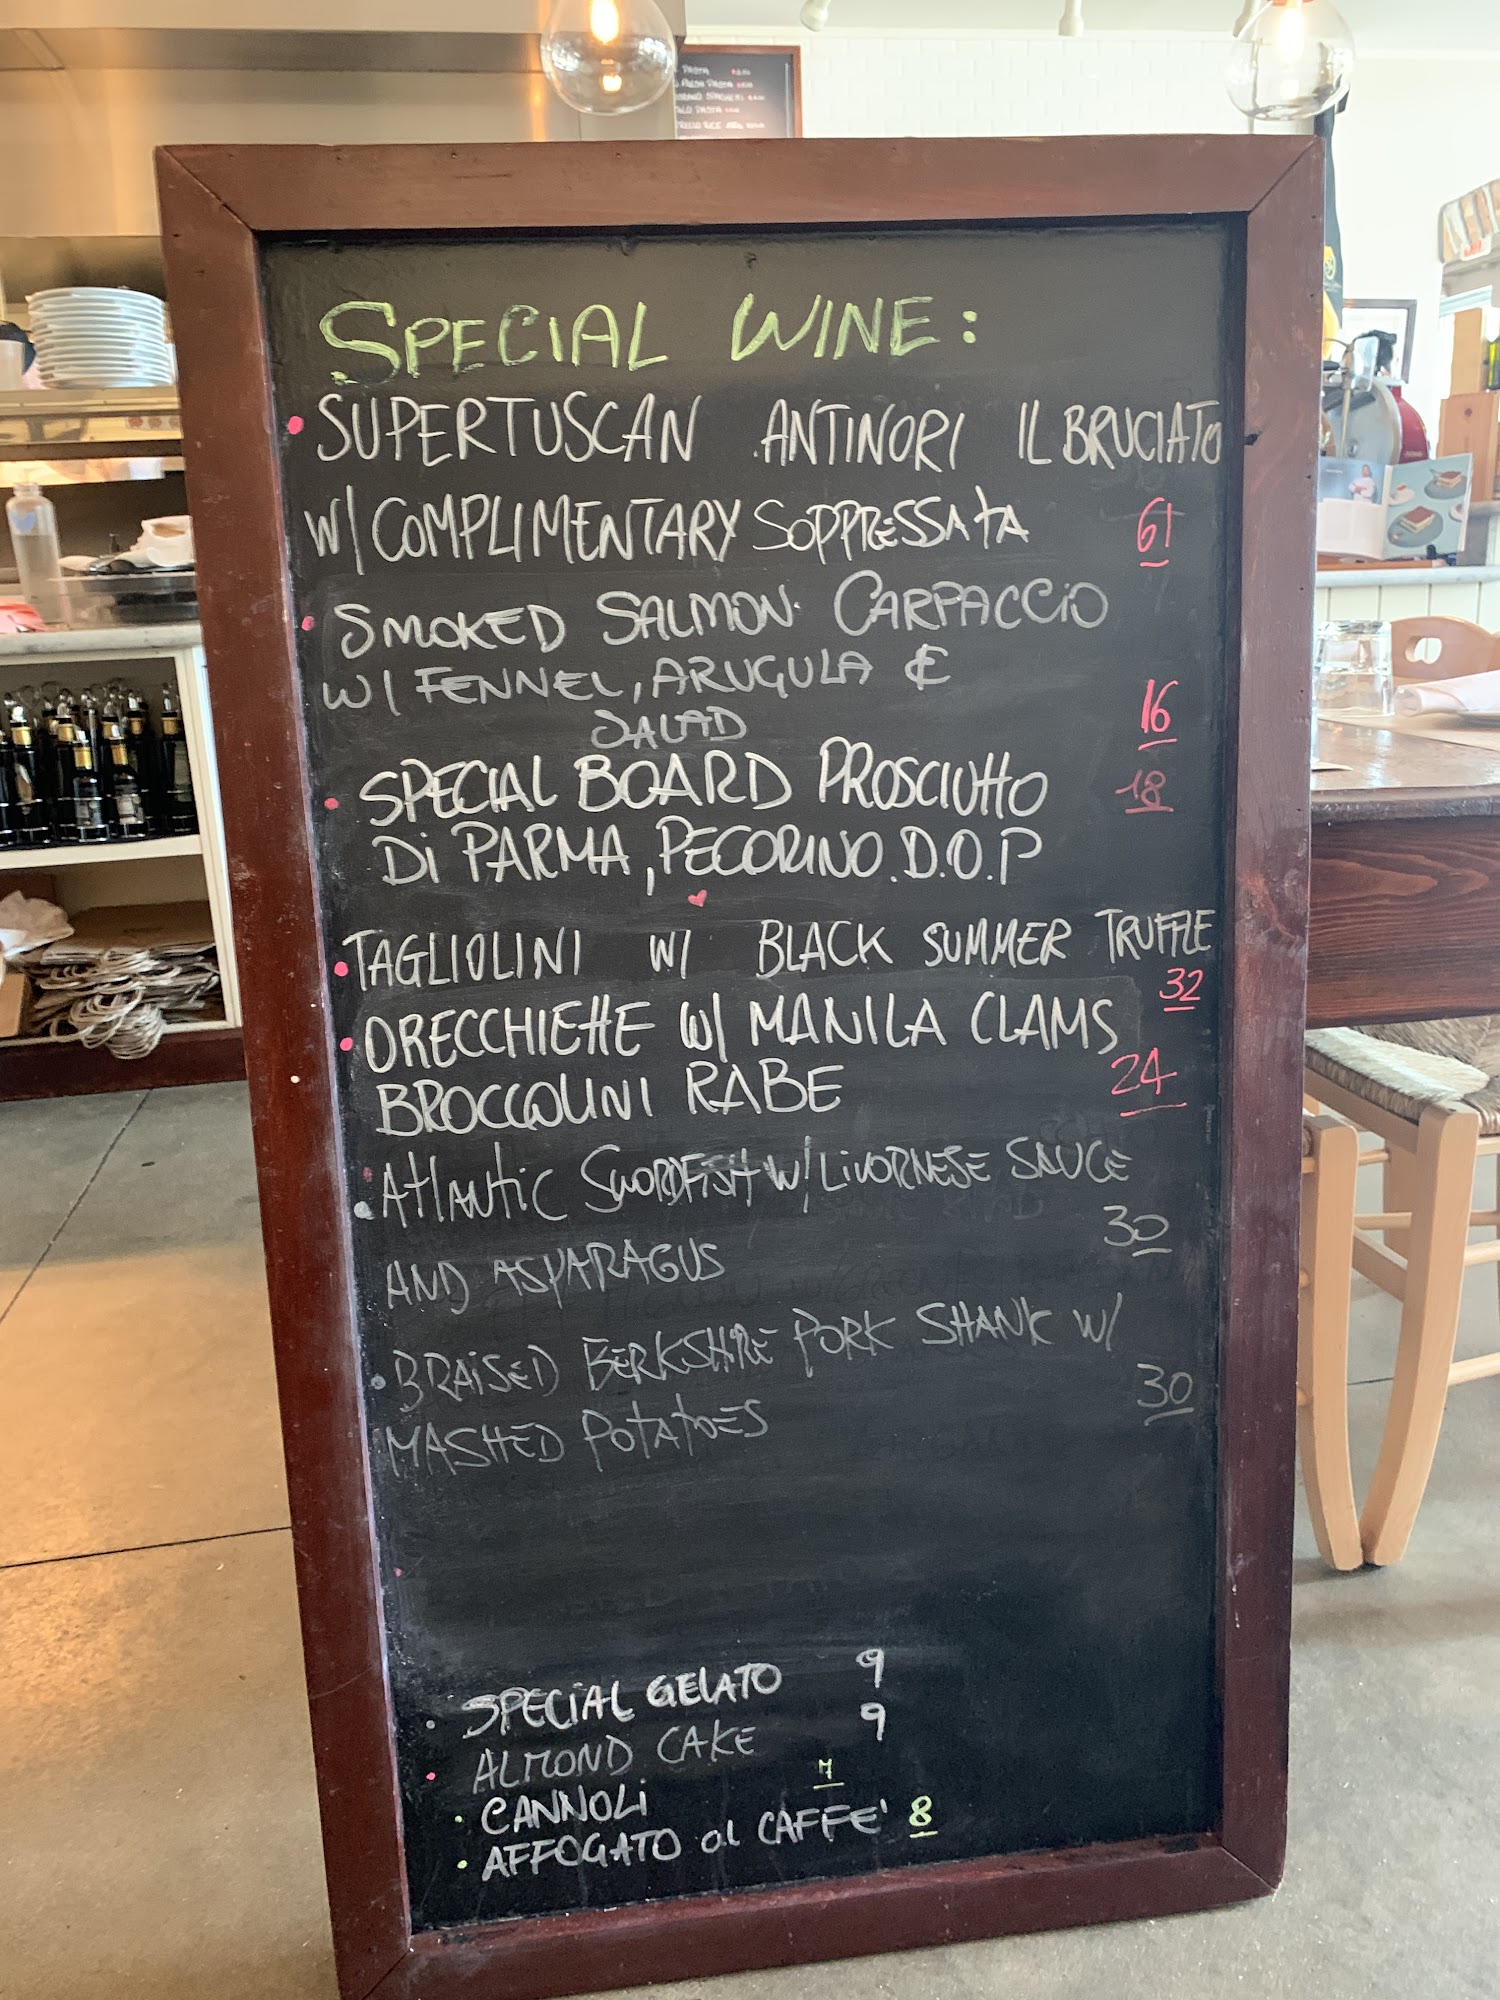 SPECIAL WINE:
• SUPERTUSCAN ANTINORI IL BRUCIATO
W/ COMPLIMENTARY SOPPRESSATA 61
• SMOKED SALMON CARPACCIO
W/ FENNEL, ARUGULA &
SALAD 16
• SPECIAL BOARD PROSCIUTTO 18
Di PARMA, PECORINO. D.O.P
• TAGLIOLINI W/ BLACK SUMMER TRUFFLE
32
• ORECCHIETTE W/ MANILA CLAMS
BROCCOLINI RABE 24
• ATLANTIC SWORDFISH W/ LIVORNESE SAUCE
AND ASPARAGUS 30
• BRAISED BERKSHIRE PORK SHANK W/
MASHED POTATOES 30
• SPECIAL GELATO 9
• ALMOND CAKE 9
• CANNOLI 7
• AFFOGATO al CAFFE' 8
PASTA